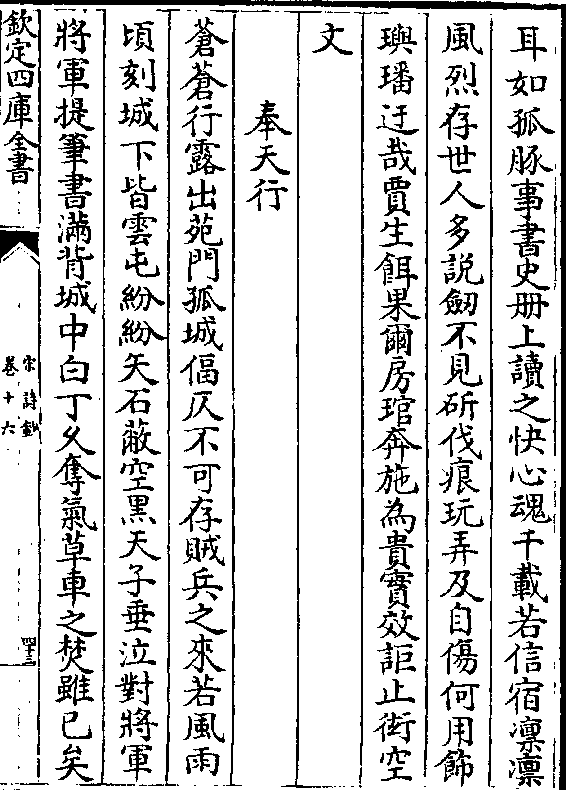 耳如孤豚事書史册上讀之快心魂千載若信宿凛凛
風烈存世人多說劒不見斫伐痕玩弄及自傷何用飾
璵璠迂哉賈生餌果爾房琯奔施為貴實效詎止衒空
文
奉天行
蒼蒼行露出苑門孤城偪仄不可存賊兵之來若風雨
頃刻城下皆雲屯紛紛矢石蔽空黒天子垂泣對將軍
將軍提筆書滿背城中白丁乆奪氣草車之焚雖已矣
欽定四庫全書
宋詩鈔
卷十六
四十三